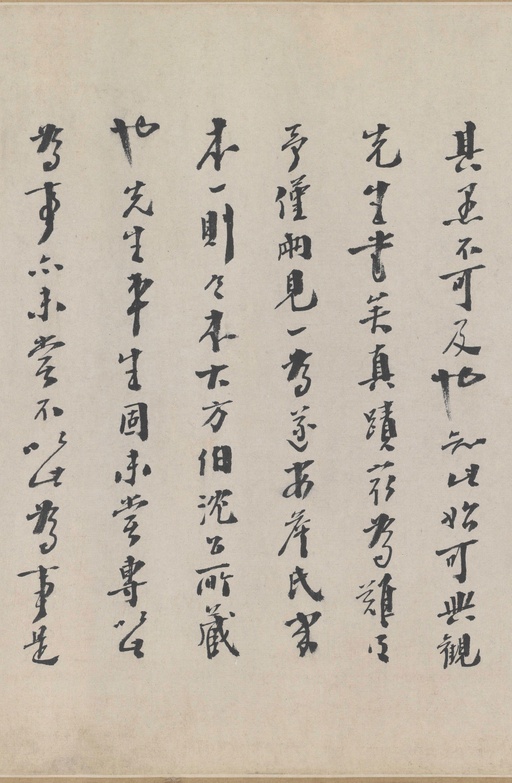 其愚不可及也知此始可與觀
先生書矣真蹟故為難得
予僅兩見一為遂安葉氏家
本一則今本大方伯沈公所藏
也先生平生固未嘗專以
為事亦未嘗不以此為事是